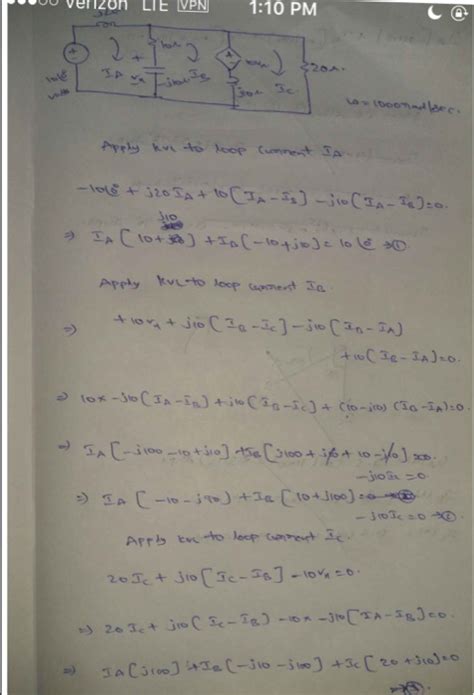 verizon LTE VPN 1:10 PM
10Ω
IA
Vx
-j10Ω
IB
j10Ω
IC
20Ω
ω = 1000rad/sec.
Apply KVL to loop current IA.
-10∠0° + j20IA + 10[IA - IB] - j10(IA - IB) = 0.
j10
⇒ IA [10 + ] + IB (-10 + j10) = 10∠0° →①
Apply KVL to loop current IB.
⇒ +10Vx + j10(IB - IC) - j10(IB - IA)
+10(IB - IA) = 0.
⇒ 10x -j10(IA - IB) + j10(IB - IC) + (10 - j10)(IB - IA) = 0.
⇒ IA [-j100 - 10 + j10] + IB [j100 + j10 + 10 - j10]
-j10IC = 0
⇒ IA (-10 - j90) + IB (10 + j100)
-j10IC = 0 →②.
Apply KVL to loop current IC.
20IC + j10[IC - IB] - 10Vx = 0.
⇒ 20IC + j10(IC - IB) - 10x - j10[IA - IB] = 0.
⇒ IA [j100] + IB (-j10 - j100) + IC (20 + j10) = 0